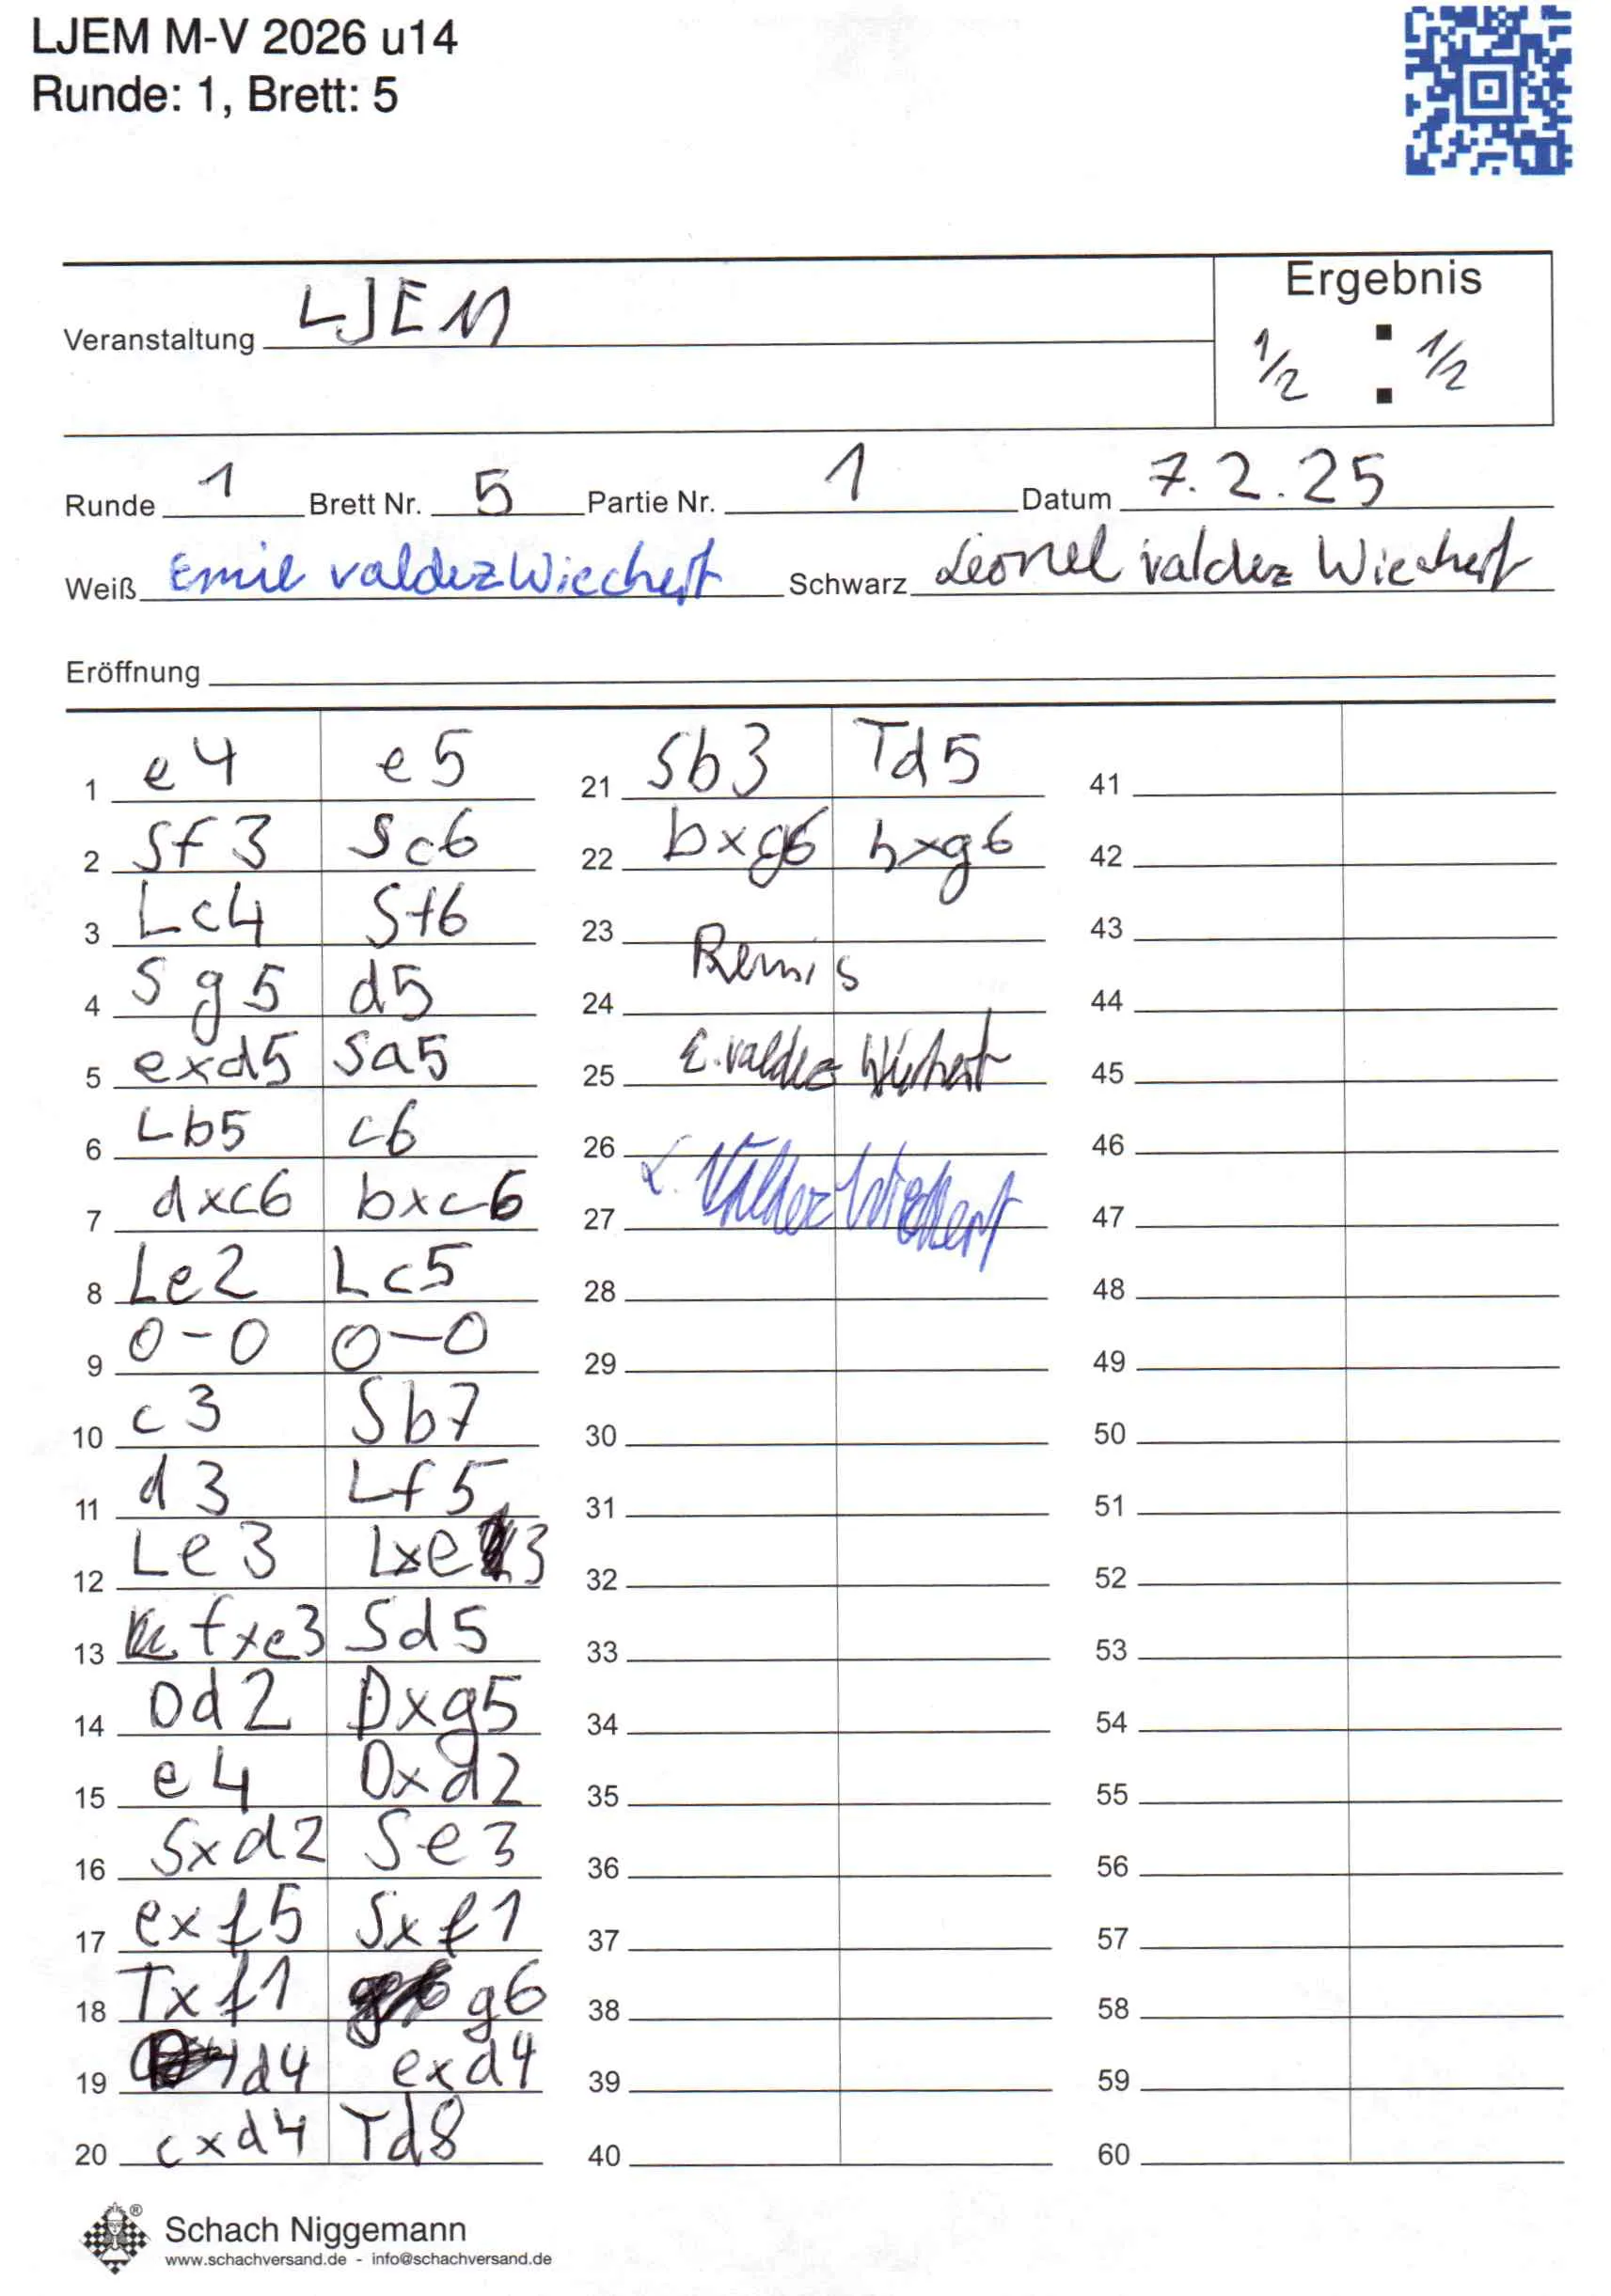 LJEM M-V 2026 u14
Runde: 1, Brett: 5
Ergebnis
Veranstaltung LJEM
1/2 : 1/2
Runde 1 Brett Nr. 5 Partie Nr. 1 Datum 7.2.25
Weiß Emil valdez Wiechert Schwarz Leonel valdez Wiechert
Eröffnung
1 e4 e5
2 Sf3 Sc6
3 Lc4 Sf6
4 Sg5 d5
5 exd5 Sa5
6 Lb5 c6
7 dxc6 bxc6
8 Le2 Lc5
9 0-0 0-0
10 c3 Sb7
11 d3 Lf5
12 Le3 Lxe3
13 fxe3 Sd5
14 Dd2 Dxg5
15 e4 Dxd2
16 Sxd2 Se3
17 exf5 Sxf1
18 Txf1 g6
19 d4 exd4
20 cxd4 Td8
21 Sb3 Td5
22 bxg6 hxg6
23
Remis
24
25 E. valdez Wichert
26
L. Valdez Wiechert
27
28
29
30
31
32
33
34
35
36
37
38
39
40
41
42
43
44
45
46
47
48
49
50
51
52
53
54
55
56
57
58
59
60
Schach Niggemann
www.schachversand.de - info@schachversand.de